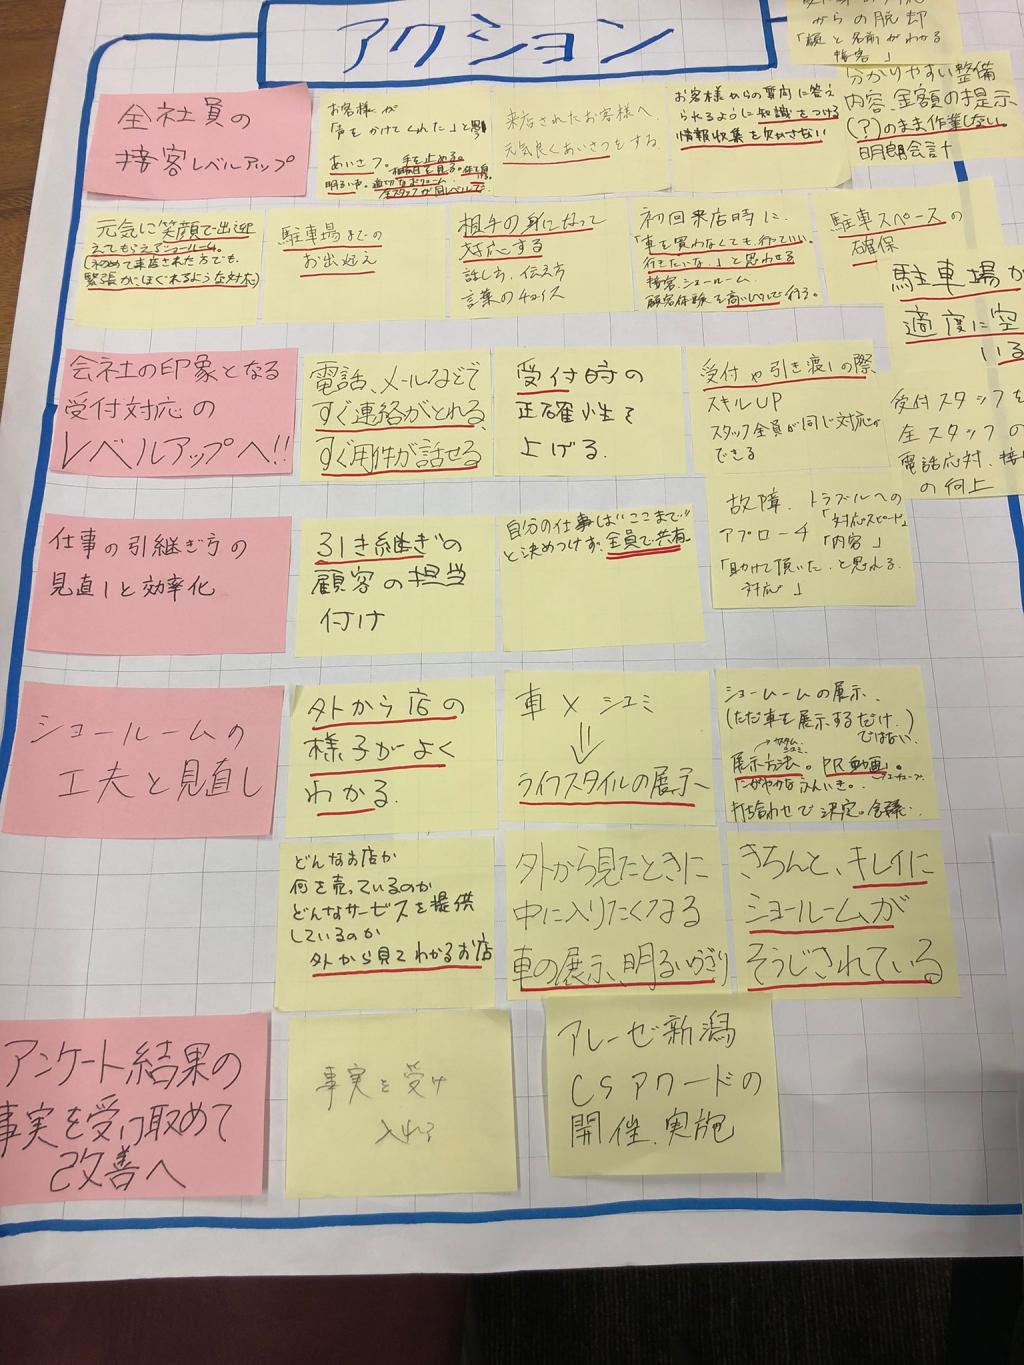 アクション
からの脱却
「顔と名前がわかる
接客」
全社員の
接客レベルアップ
お客様が
「声をかけてくれた」と
あいさつ。手を止める。
明るい声。適切なボリューム
全スタッフが同レベルで
来店されたお客様へ
元気良くあいさつをする
お客様からの質問に答え
られるように知識をつける
情報収集を欠かさない
分かりやすい整備
内容、金額の提示
(?)のまま作業しない
明朗会計
元気に笑顔で出迎
えてもらえるショールーム。
(初めて来店された方でも
緊張がほぐれるような対応)
駐車場までの
お出迎え
相手の身になって
対応する
話し方、伝え方
言葉のチョイス
初回来店時に、
「車を買わなくても行っていい、
行きたいな」と思わせる
接客、ショールーム
顧客体験を
駐車スペースの
確保
駐車場が
適度に空
いる
会社の印象となる
受付対応の
レベルアップへ!!
電話、メールなどで
すぐ連絡がとれる
すぐ用件が話せる
受付時の
正確性を
上げる。
受付や引き渡しの際
スキルUP
スタッフ全員が同じ対応が
できる
受付スタッフを
全スタッフの
電話応対、接
の向上
仕事の引継ぎ方の
見直しと効率化
引き継ぎの
顧客の担当
付け
自分の仕事は"ここまで"
と決めつけず、全員で共有。
故障、トラブルへの
アプローチ「対応スピード」
「内容」
「助けて頂いた」と思われる
対応」
ショールームの
工夫と見直し
外から店の
様子がよく
わかる。
車×シュミ
⇓
ライフスタイルの展示へ
ショームームの展示、
(ただ車を展示するだけ)
ではない。
展示方法。PR動画。
打ち合わせで決定。
どんなお店か
何を売っているのか
どんなサービスを提供
しているのか
外から見てわかるお店
外から見たときに
中に入りたくなる
車の展示、明るい
きちんと、キレイに
ショールームが
そうじされている
アンケート結果の
事実を受け取めて
改善へ
事実を受け
入れる
アレーゼ新潟
CSアワードの
開催、実施